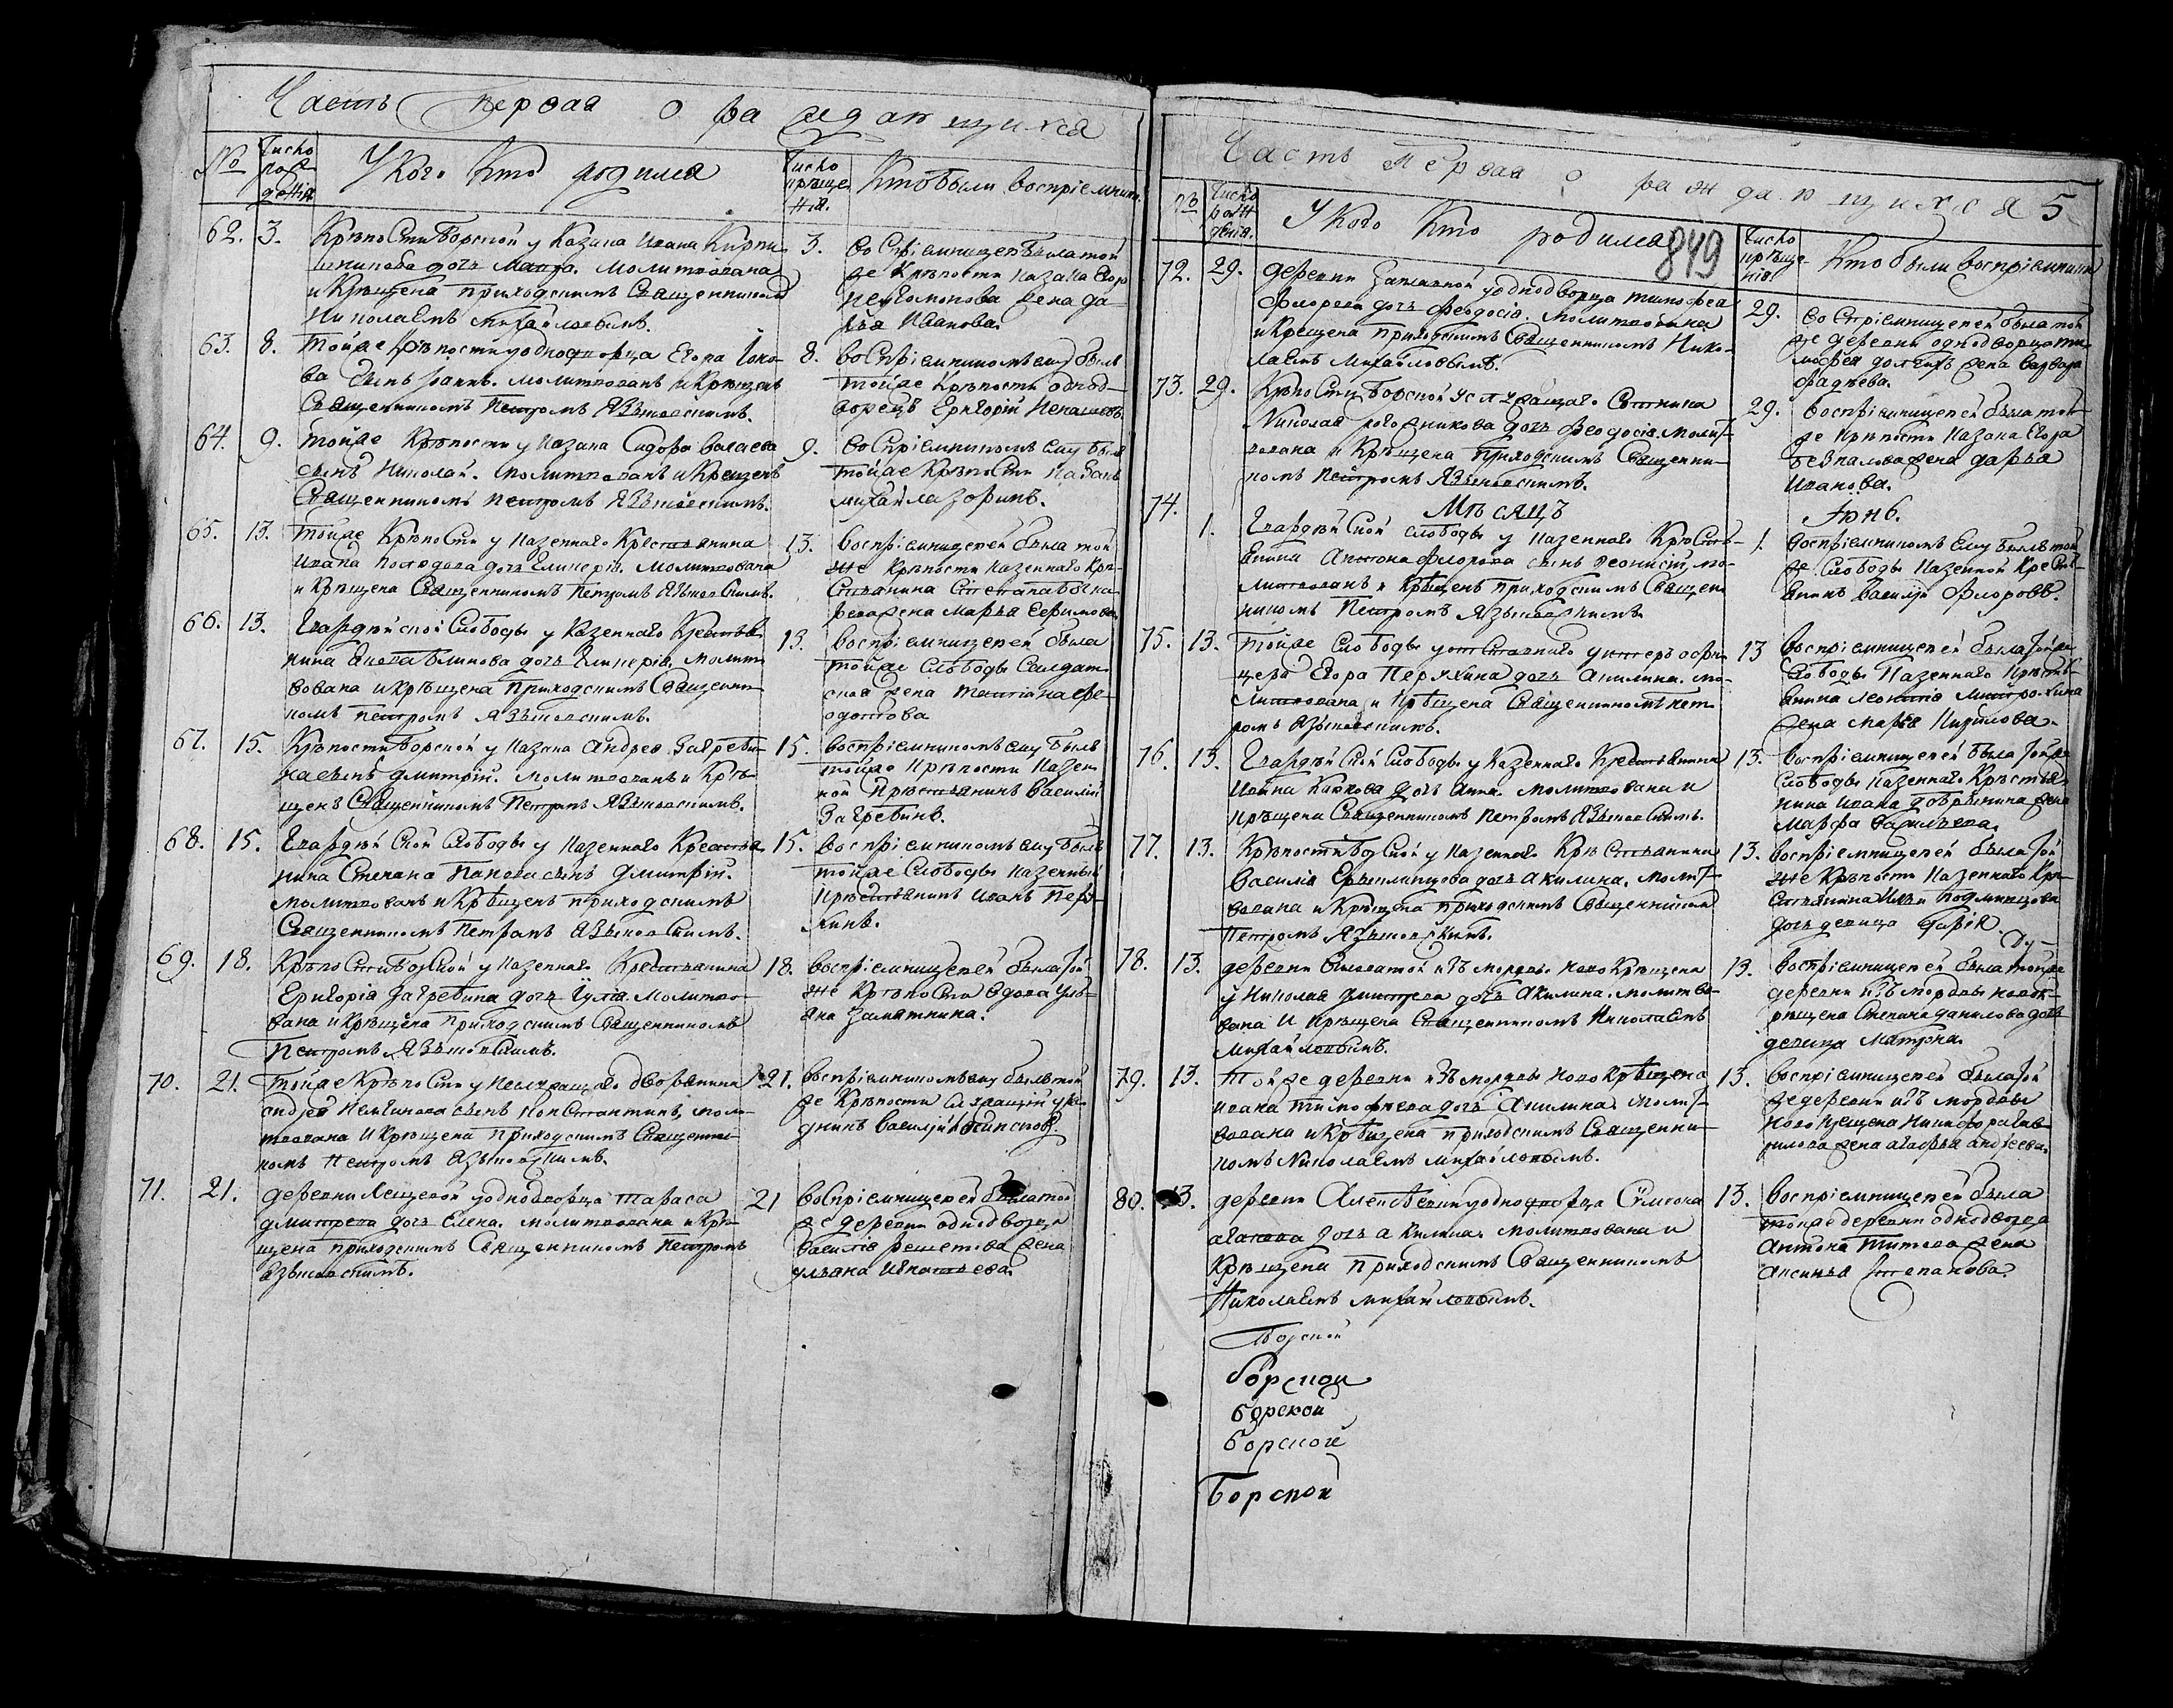 Часть первая о раждающихся
№
Число рождения
У Кого Кто родился
Число крѣщения.
Кто были воспріемники
62. 3.
Крѣпости Борской у Казака Ивана Кирпи-
шникова дочь Мавра. Молитвована
и Крѣщена приходскимъ Священникомъ
Николаемъ Михайловымъ.
3.
воспріемницей была той
же Крѣпости Казака
жена да-
рья Иванова.
63. 8.
тойже Крѣпости у однодворца Егора
сынъ молитвованъ и Крѣщенъ
Священникомъ Петромъ Языковскимъ.
8.
воспріемникомъ ему былъ
тойже Крѣпости однод-
ворецъ Григорій
64. 9.
тойже Крѣпости у Казака Сидора
сынъ Николай. молитвованъ и Крещенъ
Священникомъ петромъ Языковскимъ.
9.
воспріемникомъ ему былъ
тойже Крѣпости Казакъ
михайла зоринъ.
65. 13.
тойже Крѣпости у Казеннаго Крестьянина
Ивана дочь Гликерія. Молитвована
и Крѣщена Священникомъ Петромъ Языковскимъ.
13.
воспріемницей была той
же Крѣпости казеннаго Кре-
стьянина Степана
жена Марья Ефимова.
66. 13.
Гвардейской Слободы у Казеннаго Крестья-
нина Блинова дочь Гликерія. Молит-
вована и крѣщена Приходскимъ Священни-
комъ петромъ Языковскимъ.
13.
воспріемницей была
тойже Слободы Салдат-
ская жена татіана фе-
одотова
67. 15.
Крѣпости Борской у Казака Андрея Загреби-
на сынъ дмитрій. Молитвованъ и Крѣ-
щенъ Священникомъ Петромъ Языковскимъ.
15.
воспріемникомъ ему былъ
тойже Крѣпости Казен-
ной крестьянинъ василій
Загребинъ.
68. 15.
Гвардейской Слободы у Казеннаго Крестья-
нина Степана Панова сынъ Дмитрій.
молитвованъ и Крѣщенъ приходскимъ
Священникомъ Петромъ Языковскимъ.
15.
воспріемникомъ ему былъ
тойже Слободы Казенный
крестьянинъ Иванъ Перя-
кинъ.
69. 18.
Крѣпости Борской у Казеннаго Крестьянина
Григорія Загребина дочь Іулія. Молитво-
вана и крѣщена приходскимъ Священникомъ
Петромъ Языковскимъ.
18.
воспріемницей была той
же Крѣпости вдова Уль-
яна Замятнина.
70. 21.
тойже Крѣпости у Неслужащаго дворянина
андрея сынъ Константинъ, моли-
твованъ и крѣщенъ приходскимъ Священни-
комъ Петромъ Языковскимъ.
21.
воспріемникомъ ему былъ той
же Крѣпости служащій уря-
дникъ василій
71. 21.
деревни Лещевой у однодворца тараса
дмитрева дочь Елена. молитвована и Крѣ-
щена приходскимъ Священникомъ петромъ
Языковскимъ.
21
воспріемницей была той
же деревни однодворца
василія решетова жена
ульяна Игнатьева.
Часть Первая о раждающихся 5
849
№
Число рожденія.
У Кого Кто родился
Число крѣщенія.
Кто были воспріемники
72. 29.
деревни у однодворца тимофея
Фролова дочь Феодосія. молитвована
и Крещена приходскимъ Священникомъ Нико-
лаемъ Михайловымъ.
29.
воспріемницей была той
же деревни однодворца ти-
мофея жена варвара
Фадѣева.
73. 29.
Крѣпости Борской у Служащаго Сотника
Николая дочь Феодосія. Молит-
вована и Крѣщена Приходскимъ Священни-
комъ Петромъ Языковскимъ.
29.
воспріемницей была той-
же Крѣпости Казака Егора
жена дарья
Иванова.
Мѣсяцъ Іюнь.
74. 1.
Гвардейской слободы у Казеннаго Кресть-
янина Антона Фролова сынъ Леонтій, мо-
литвованъ и Крѣщенъ приходскимъ Священ-
никомъ Петромъ Языковскимъ.
1.
воспріемникомъ Ему былъ той
же Слободы Казенной Кресть-
янинъ Василій Фроловъ.
75. 13.
тойже Слободы у отставнаго унтеръ офи-
цера Егора Перякина дочь Акилина. мо-
литвована и Крѣщена Священникомъ пет-
ромъ Языковскимъ.
13
воспріемницей была тойже
Слободы Казеннаго Кресть-
янина Леонтія Митрохина
жена Марфа Кирилова.
76. 13.
Гвардейской Слободы у Казеннаго Крестьянина
Ивана дочь Анна. молитвована и
Крѣщена Священникомъ Петромъ Языковскимъ.
13.
воспріемницей была тойже
Слободы казеннаго Крестья-
нина Ивана добрынина жена
Марфа Васильева.
77. 13.
Крѣпости Борской у Казеннаго Крестьянина
Василія дочь Акилина. Молит-
вована и Крѣщена приходскимъ Священникомъ
Петромъ Языковскимъ.
13.
воспріемницей была той
же Крѣпости казеннаго Кре-
стьянина
дочь девица Дарія.
78. 13.
деревни изъ мордвы Ново Крѣщена
у Николая дмитрева дочь Акилина. молитво-
вана и Крѣщена Священникомъ Николаемъ
Михайловымъ.
13.
воспріемницей была тойже
деревни изъ мордвы новок-
рѣщена Степана данилова дочь
девица Матрона.
79. 13.
тойже деревни изъ мордвы новокрѣщена
Ивана тимофеева дочь Акилина. Молит-
вована и Крѣщена приходскимъ Священни-
комъ Николаемъ Михайловымъ.
13.
воспріемницей была той
же деревни изъ мордвы
Новокрещена Никифора Гав-
рилова жена агафья андреева.
80. 13.
деревни Алексѣевки у однодворца Симеона
дочь акилина. молитвована и
Крѣщена Приходскимъ Священникомъ
Николаемъ Михайловымъ.
13.
воспріемницей была
тойже деревни однодворца
Антона титова жена
Аксинья Степанова.
Борской
Борской
борской
борской
Борской